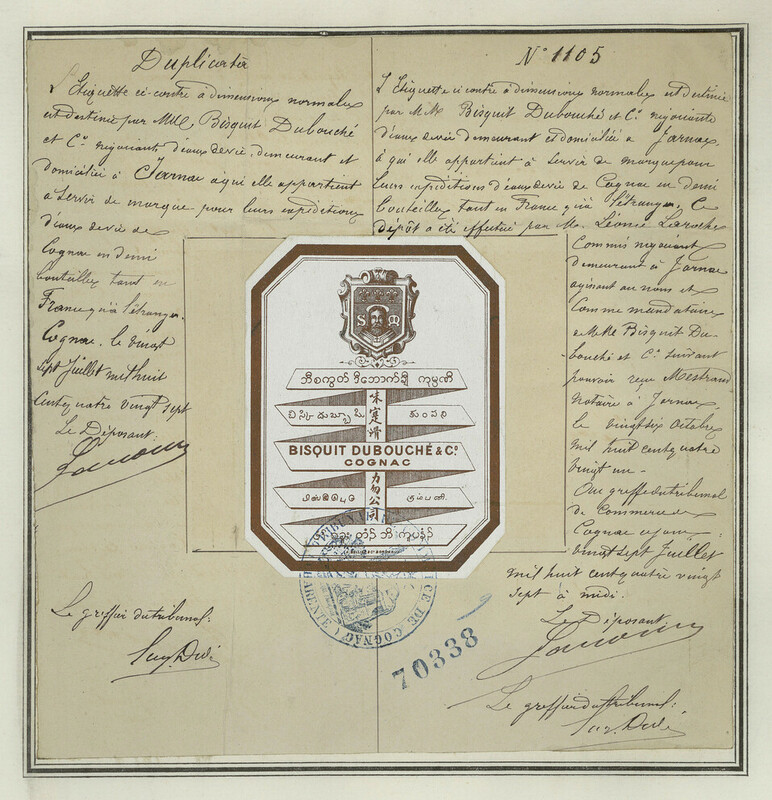 Duplicata
L'Etiquette ci-contre à dimensions normales
est destinée par MM. Bisquit Dubouché
et Cie négociants d'eaux de vie, demeurant et
domiciliés à Jarnac à qui elle appartient
à servir de marque pour leurs expéditions
d'eaux de vie de
Cognac en demi
bouteilles tant en
France qu'à l'étranger.
Cognac, le vingt
sept Juillet mil huit
cent quatre vingt sept
Le Déposant:
Le greffier du tribunal:
No 1105
L'Etiquette ci contre à dimensions normales est destinée
par MM. Bisquit Dubouché et Cie négociants
d'eaux de vie demeurant et domiciliés à Jarnac,
à qui elle appartient à servir de marque pour
leurs expéditions d'eaux de vie de Cognac en demi
bouteilles tant en France qu'à l'étranger. Ce
dépôt a été effectué par M. Léonse Laroche
Commis négociant
demeurant à Jarnac
agissant au nom et
Comme mandataire
de MM. Bisquit Du-
bouché et Cie suivant
pouvoir reçu Mestraud
Notaire à Jarnac,
le vingt six Octobre
mil huit cent quatre
vingt un -
Au greffe du tribunal
de Commerce de
Cognac ce jour
vingt sept Juillet
mil huit cent quatre vingt
sept à midi.
Le Déposant
Le greffier du tribunal:
S M
ဘီစကွတ် ဒီဘောက်ချီ ကုမ္ပဏီ
味寔滑
BISQUIT DUBOUCHÉ & Co.
COGNAC
力勿公司
கம்பனி.
DE COGNAC
70338